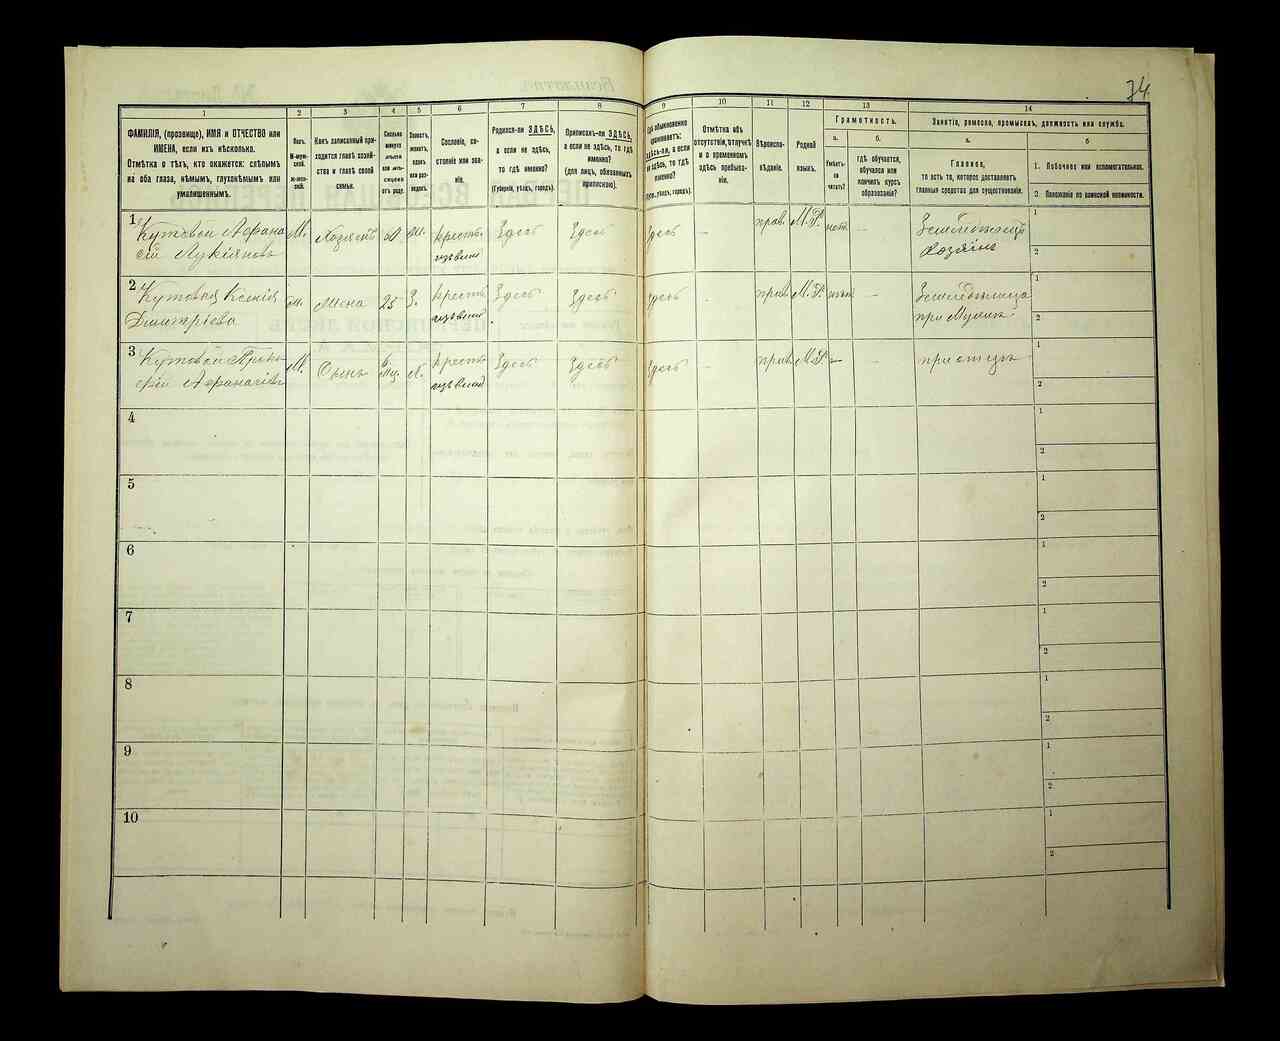 74
1
2
3
4
5
6
7
8
9
10
11
12
13
14
ФАМИЛІЯ, (прозвище), ИМЯ и ОТЧЕСТВО или
ИМЕНА, если ихъ нѣсколько.
Отмѣтка о тѣхъ, кто окажется: слѣпымъ
на оба глаза, нѣмымъ, глухонѣмымъ или
умалишеннымъ.
Полъ.
М-муж-
ской.
Ж-жен-
скій.
Какъ записанный при-
ходится главѣ хозяй-
ства и главѣ своей
семьи.
Сколько
минуло
лѣтъ
или мѣ-
сяцевъ
отъ роду.
Холостъ,
женатъ,
вдовъ
или раз-
веденъ.
Сословіе, со-
стояніе или зва-
ніе.
Родился-ли ЗДѢСЬ,
а если не здѣсь,
то гдѣ именно?
(Губернія, уѣздъ, городъ).
Приписанъ-ли ЗДѢСЬ,
а если не здѣсь, то гдѣ
именно?
(для лицъ, обязанныхъ
припискою).
Гдѣ обыкновенно
проживаетъ:
ЗДѢСЬ-ли, а если
не здѣсь, то гдѣ
именно?
Отмѣтка объ
отсутствіи, отлучкѣ
и о временномъ
здѣсь пребыва-
ніи.
Вѣроиспо-
вѣданіе.
Родной
языкъ.
Грамотность.
а.
Умѣетъ-
ли
читать?
б.
гдѣ обучается,
обучался или
кончилъ курсъ
образованія?
Занятіе, ремесло, промыселъ, должность или служба.
а.
Главное,
то есть то, которое доставляетъ
главныя средства для существованія.
б
1. Побочное или вспомогательное.
2. Положеніе по воинской повинности.
1
Кутовой Афана
сій Лукіяновъ
М.
Хозяинъ
ж.
крестьян.
Здесь
Здесь
Здесь
—
прав.
М.Р.
нет.
—
Хозяинъ
1
2
2
Кутовая Ксенія
Дмитріева
ж.
Жена
25
З.
Крестьян.
Здесь
Здесь
Здесь
прав.
М.Р.
нет
—
при Мужѣ
1
2
3
Кутовой
Афанасіевъ
М.
Сынъ
М.
Крестьян.
Здесь
Здесь
Здесь
—
прав.
М.Р.
—
при отцѣ
1
2
4
1
2
5
1
2
6
1
2
7
1
2
8
1
2
9
1
2
10
1
2